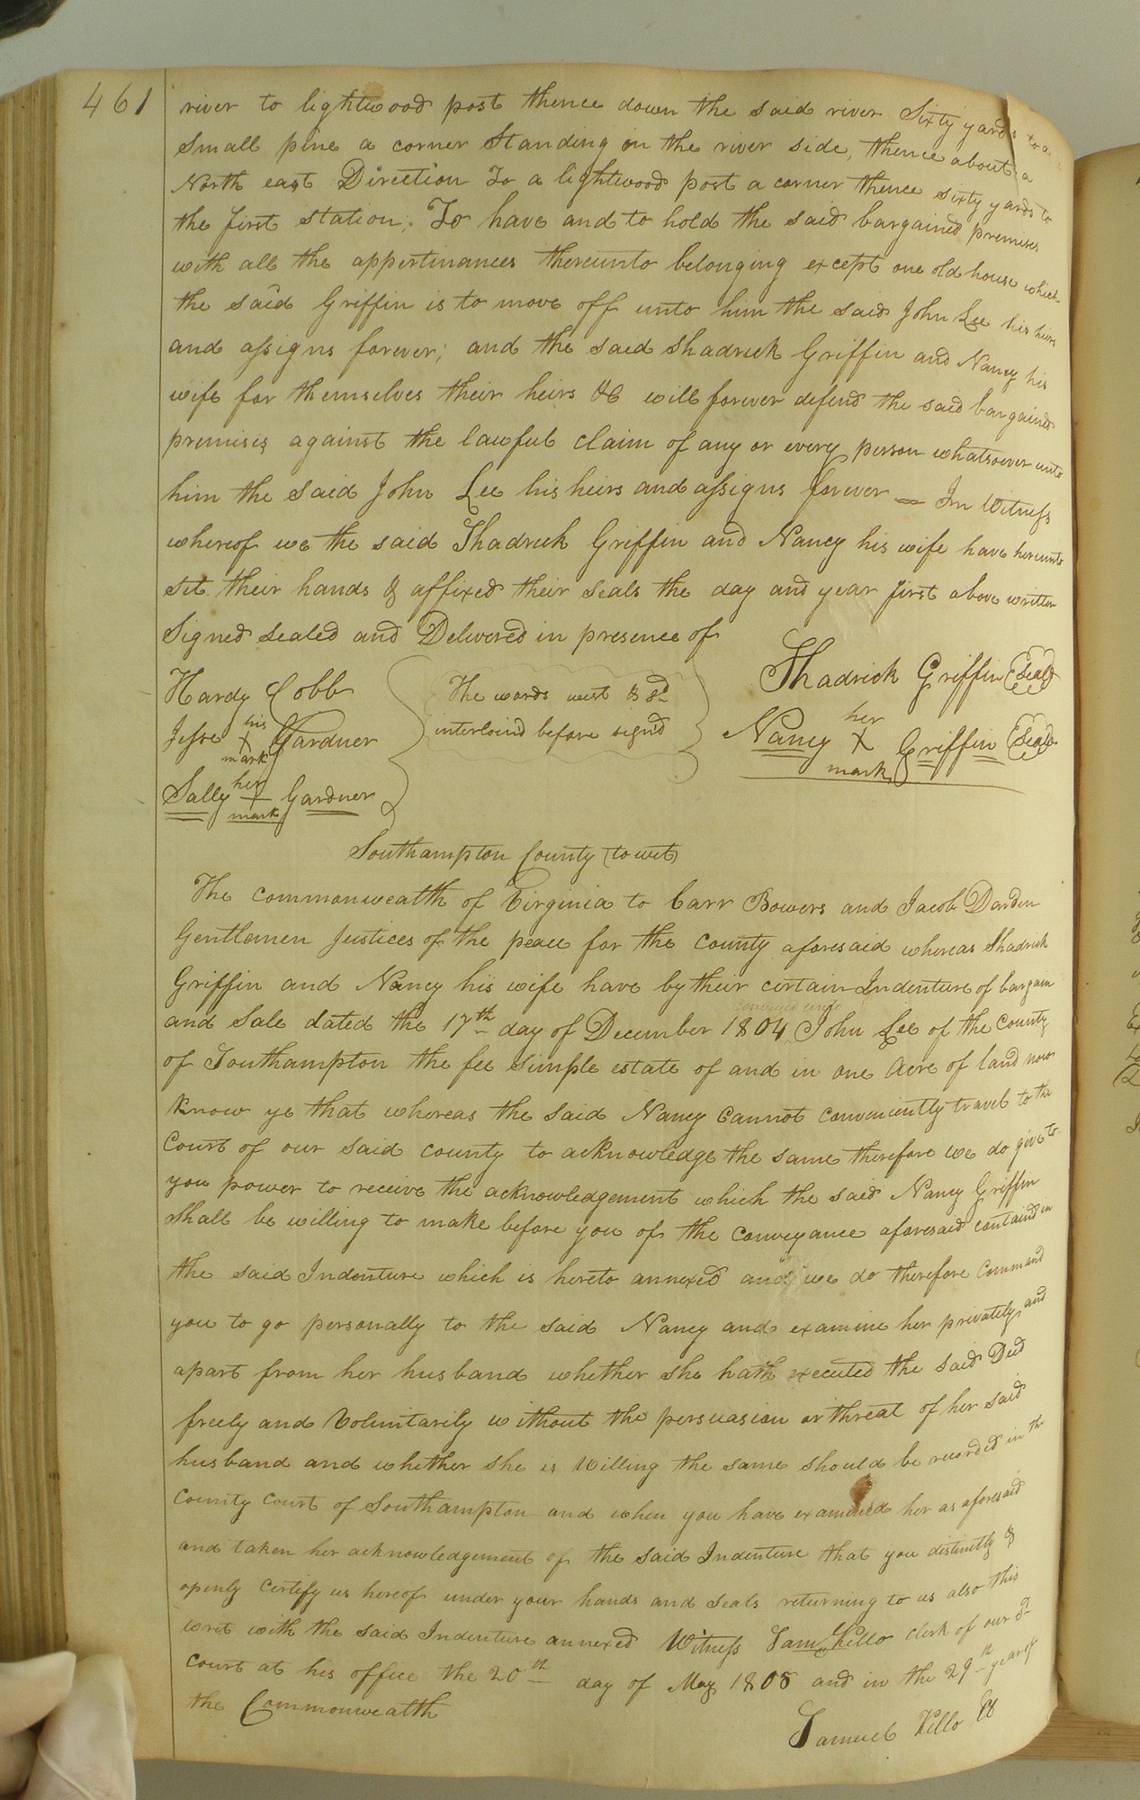 461
river to lightwood post thence down the said river Sixty yards to a
Small pine a corner Standing on the river side, thence about a
North east Direction To a lightwood post a corner thence sixty yards to
the first station. To have and to hold the said bargained premises
with all the appertinances thereunto belonging except one old house which
the said Griffin is to move off unto him the said John Lee his heirs
and assigns forever; and the said Shadrick Griffin and Nancy his
wife for themselves their heirs &c will forever defend the said bargained
premises against the lawful claim of any or every person whatsoever unto
him the said John Lee his heirs and assigns forever — In Witness
whereof we the said Shadrick Griffin and Nancy his wife have hereunto
set their hands & affixed their seals the day and year first above written
Signed sealed and Delivered in presence of
Hardy Cobb
Jesse his X mark Gardner
Sally her + mark Gardner
The words west & sd
interloind before signd
Shadrick Griffin (Seal)
Nancy her X mark Griffin (Seal)
Southampton County (to wit)
The commonwealth of Virginia to Carr Bowers and Jacob Darden
Gentlemen Justices of the peace for the County aforesaid whereas Shadrick
Griffin and Nancy his wife have by their certain Indenture of bargain
and Sale dated the 17th day of December 1804 conveyed unto John Lee of the County
of Southampton the fee simple estate of and in one Acre of land now
know ye that whereas the said Nancy cannot conveniently travel to the
Court of our said county to acknowledge the same therefore we do give to
you power to receive the acknowledgement which the said Nancy Griffin
Shall be willing to make before you of the conveyance aforesaid containd in
the said Indenture which is hereto annexed and we do therefore command
you to go personally to the said Nancy and examine her privately and
apart from her husband whether she hath executed the said Deed
freely and Voluntarily without the persuasion or threat of her said
husband and whether she is Willing the same should be recorded in the
County Court of Southampton and when you have examined her as aforesaid
and taken her acknowledgement of the said Indenture that you distinctly &
openly certify us hereof under your hands and seals returning to us also this
writ with the said Indenture annexed Witness Saml Kello clerk of our sd
court at his office the 20th day of May 1805 and in the 29th year of
the Commonwealth
Samuel Kello Cl